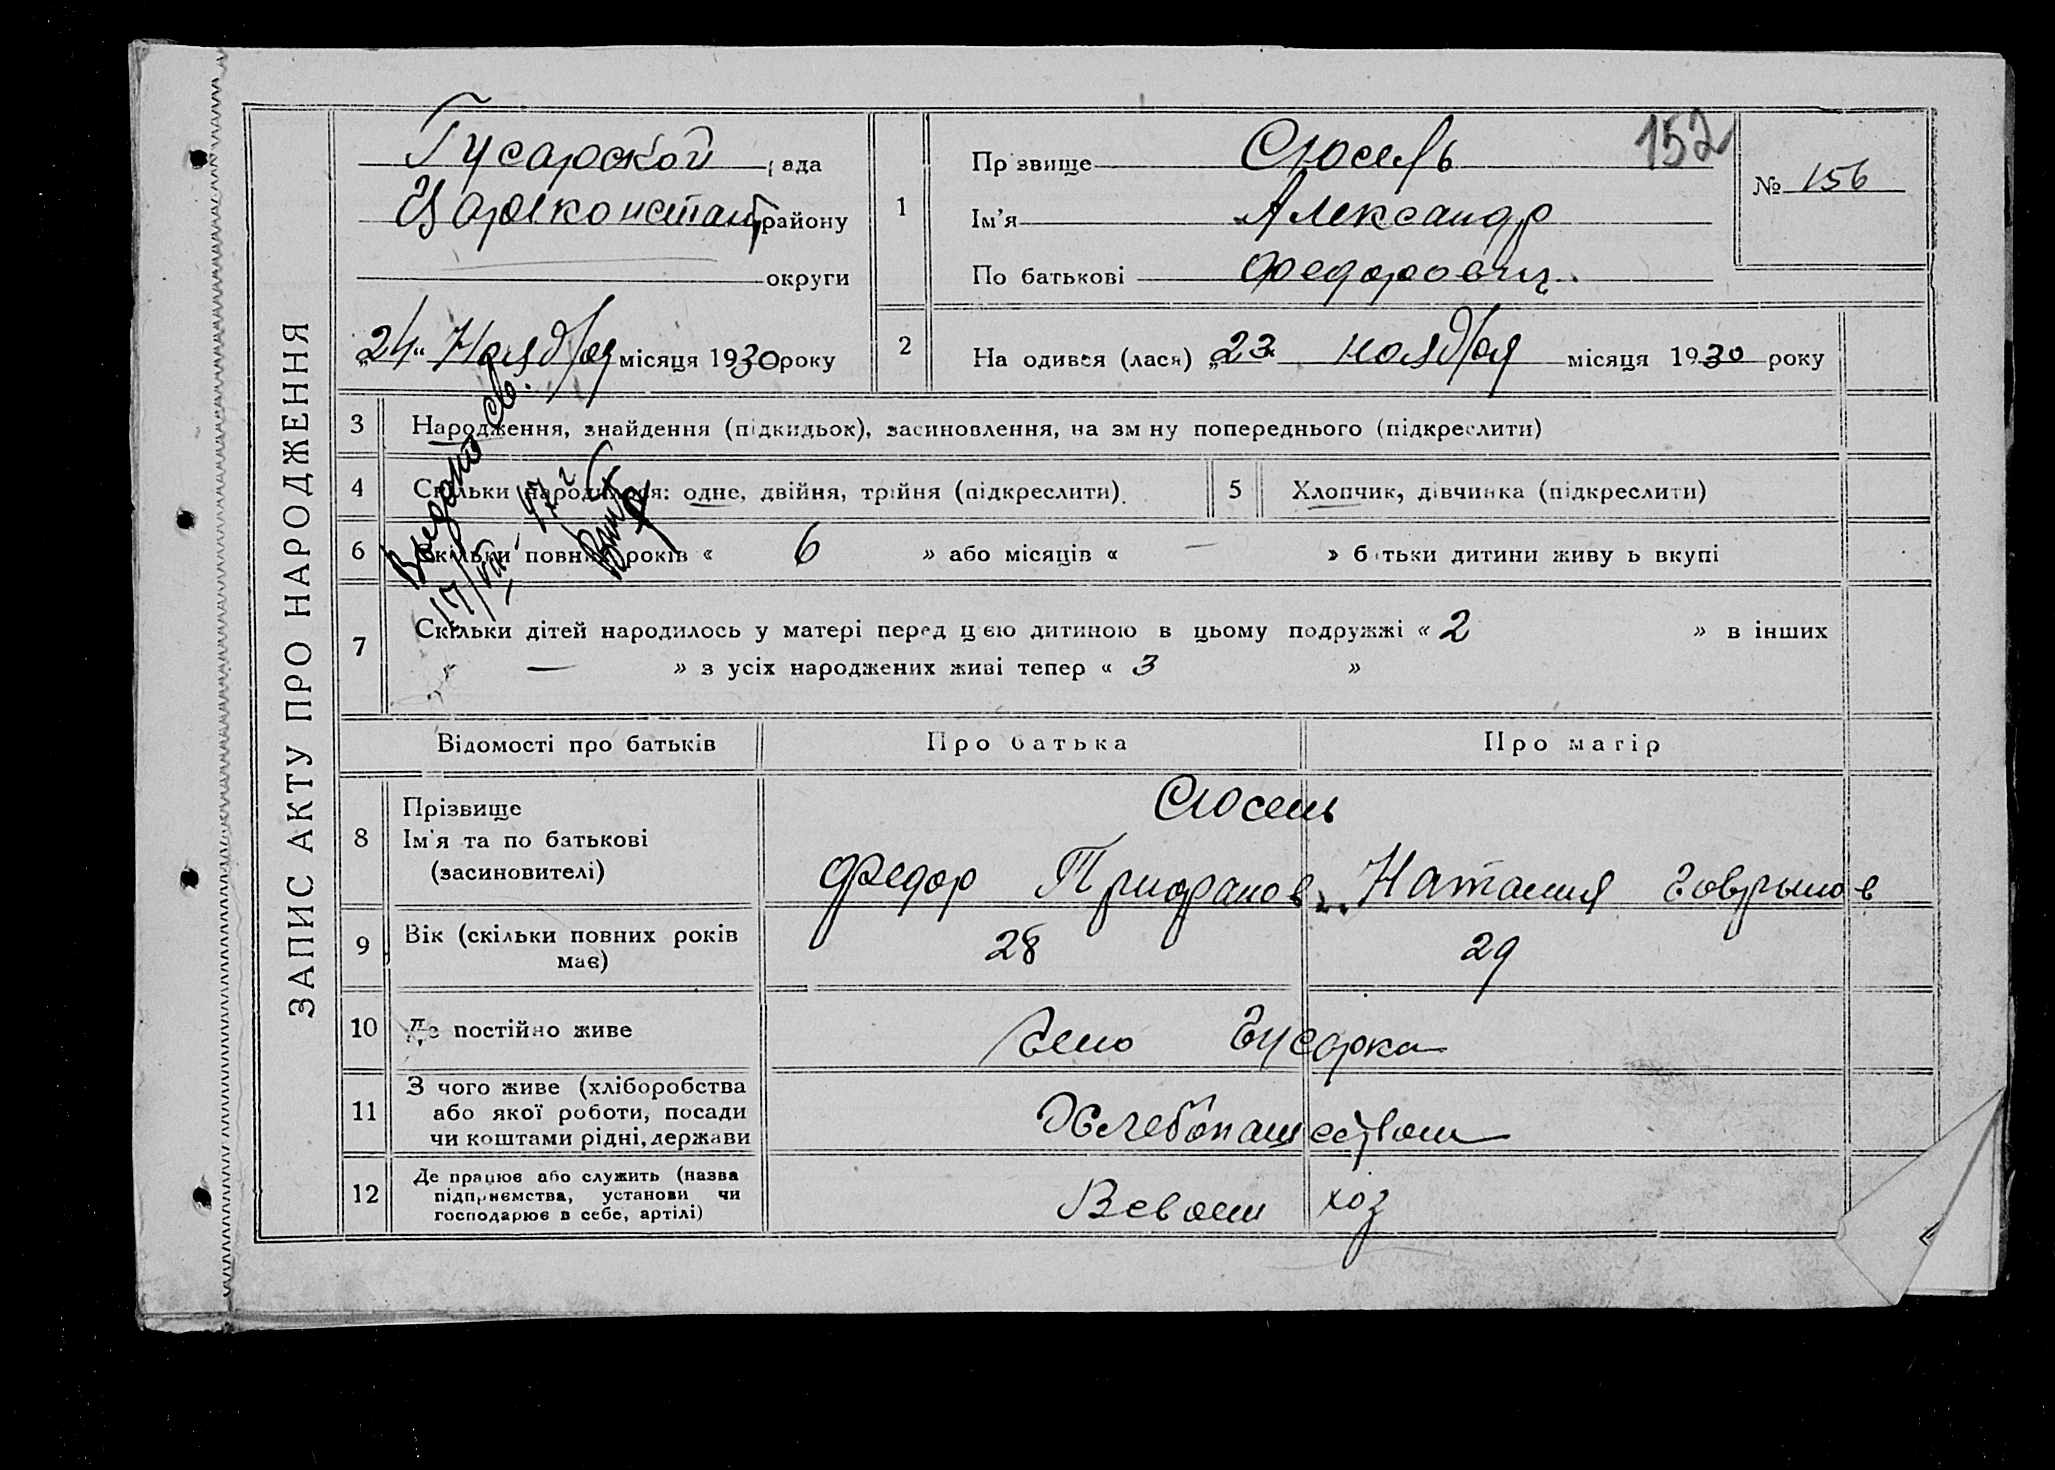 ЗАПИС АКТУ ПРО НАРОДЖЕННЯ
Гусарской рада
Цареконстант району
округи
„24“ Ноября місяця 1930 року
1
Прізвище Сюсель
Ім'я Александр
По батькові Федорович.
152
№ 156
2
На одився (лася) „23 ноября місяця 1930 року
3 Народження, знайдення (підкидьок), засиновлення, на зміну попереднього (підкреслити)
4 Скільки народилося: одне, двійня, трійня (підкреслити).
5 Хлопчик, дівчинка (підкреслити)
6 Скільки повних років « 6 » або місяців « — » батьки дитини живуть вкупі
7 Скільки дітей народилось у матері перед цією дитиною в цьому подружжі « 2 » в інших
« — » з усіх народжених живі тепер « 3 »
Выдано св.
17/VII 47 г
Відомості про батьків
Про батька
Про матір
8 Прізвище
Ім'я та по батькові
(засиновителі)
Сюсель
Федор Трифанов.. Наталия Говрылов
9 Вік (скільки повних років
має)
28
29
10 Де постійно живе
Село Гусарка
11 З чого живе (хліборобства
або якої роботи, посади
чи коштами рідні, держави
Хлебопашеством
12 Де працює або служить (назва
підприємства, установи чи
господарює в себе, артілі)
В своем хоз